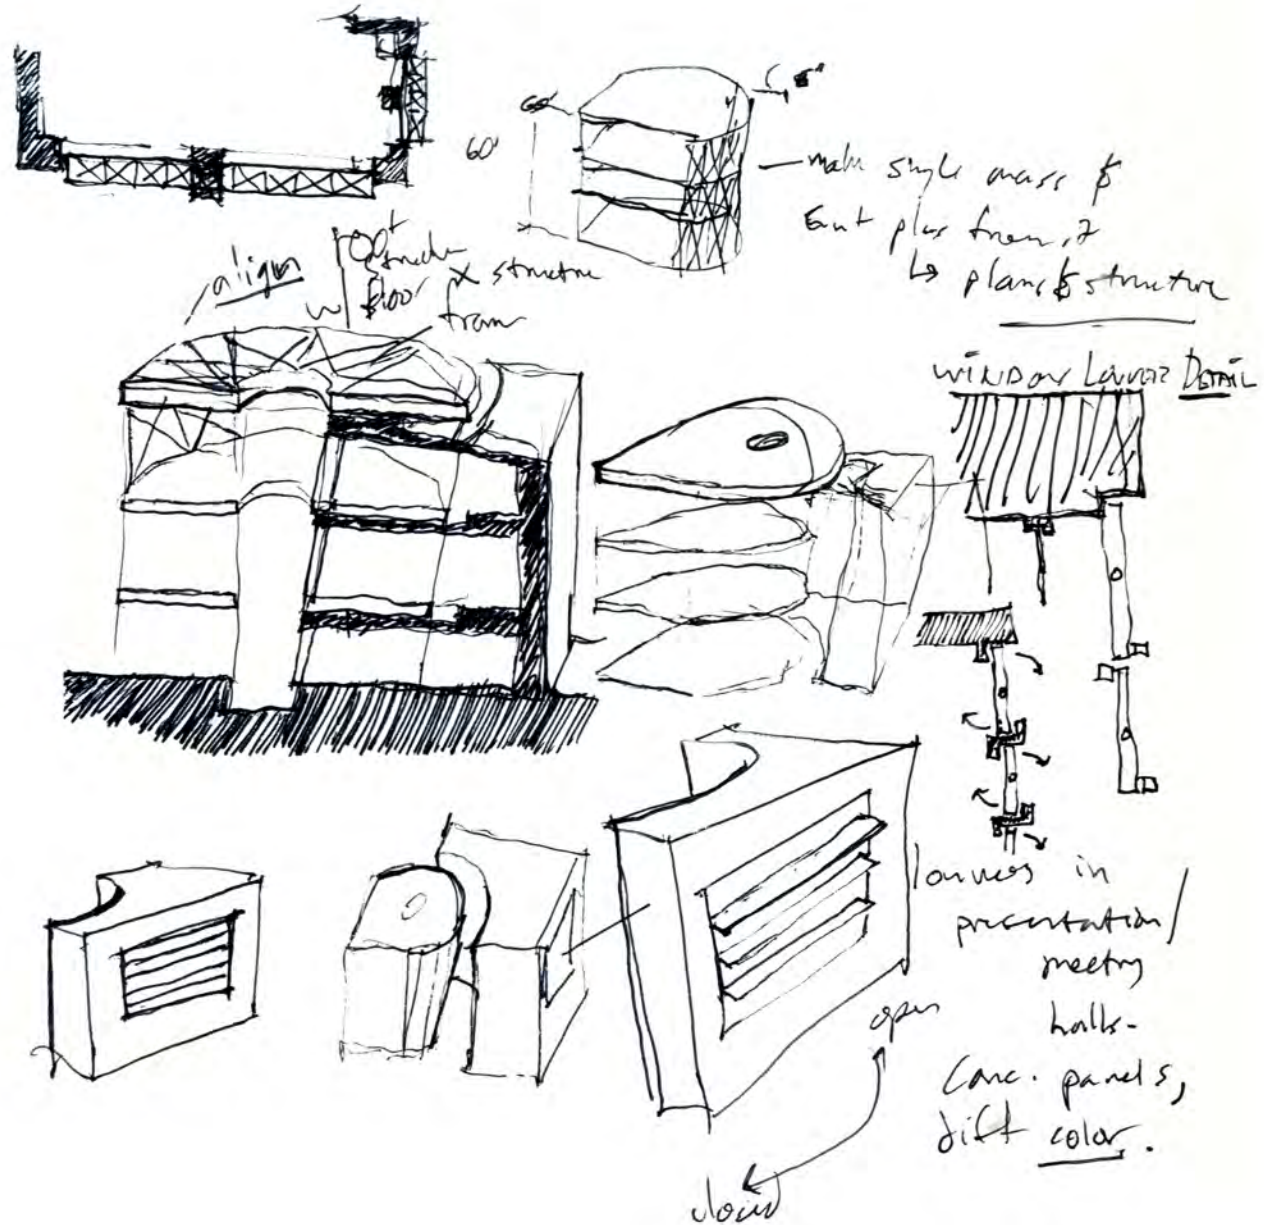 60'
60'
make single mass &
plus
↳ plans & structure
align
roof
structure
w/ floor
x structure
WINDOW LOUVER DETAIL
louvers in
presentation/
meeting
halls.
Conc. panels,
diff color.
open
closed